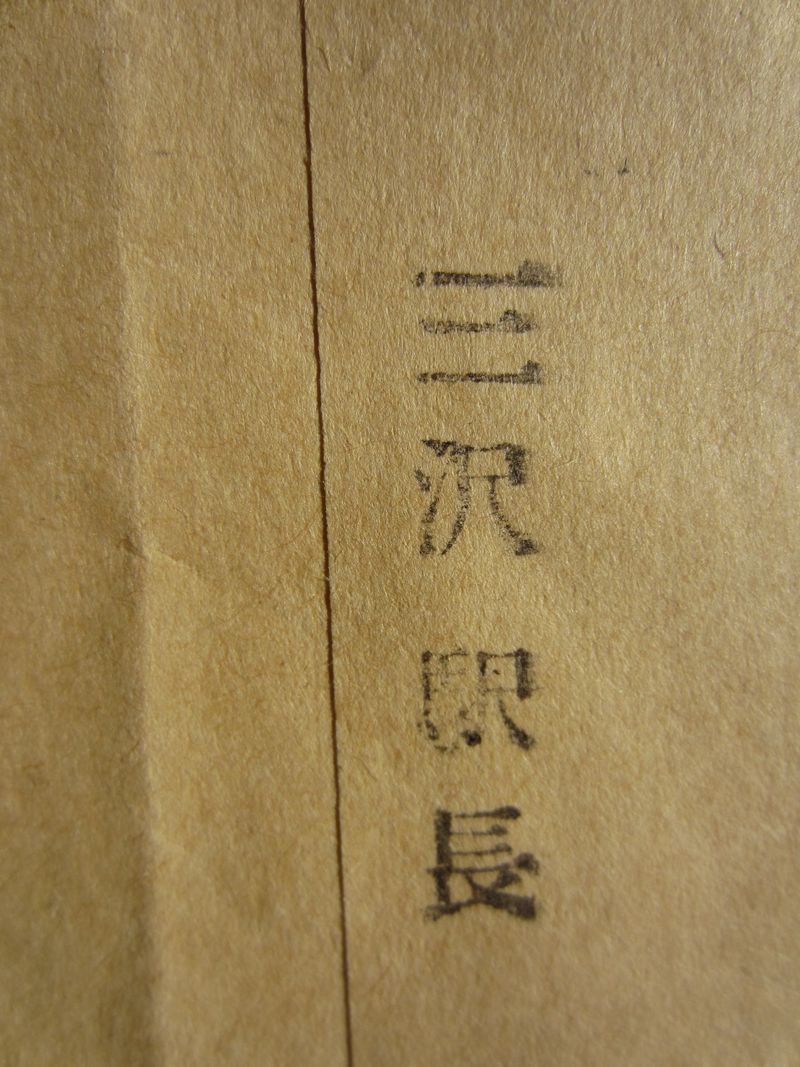 三沢駅長